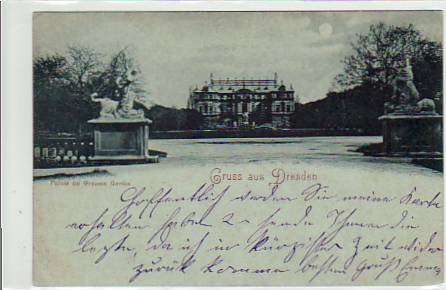 Gruss aus Dresden
Palais im Grossen Garten
Hoffentlich werden Sie meine Karte
erhalten haben 2 sende Ihnen die
letzte, da ich in kürzester Zeit wieder
zurück komme besten Gruß